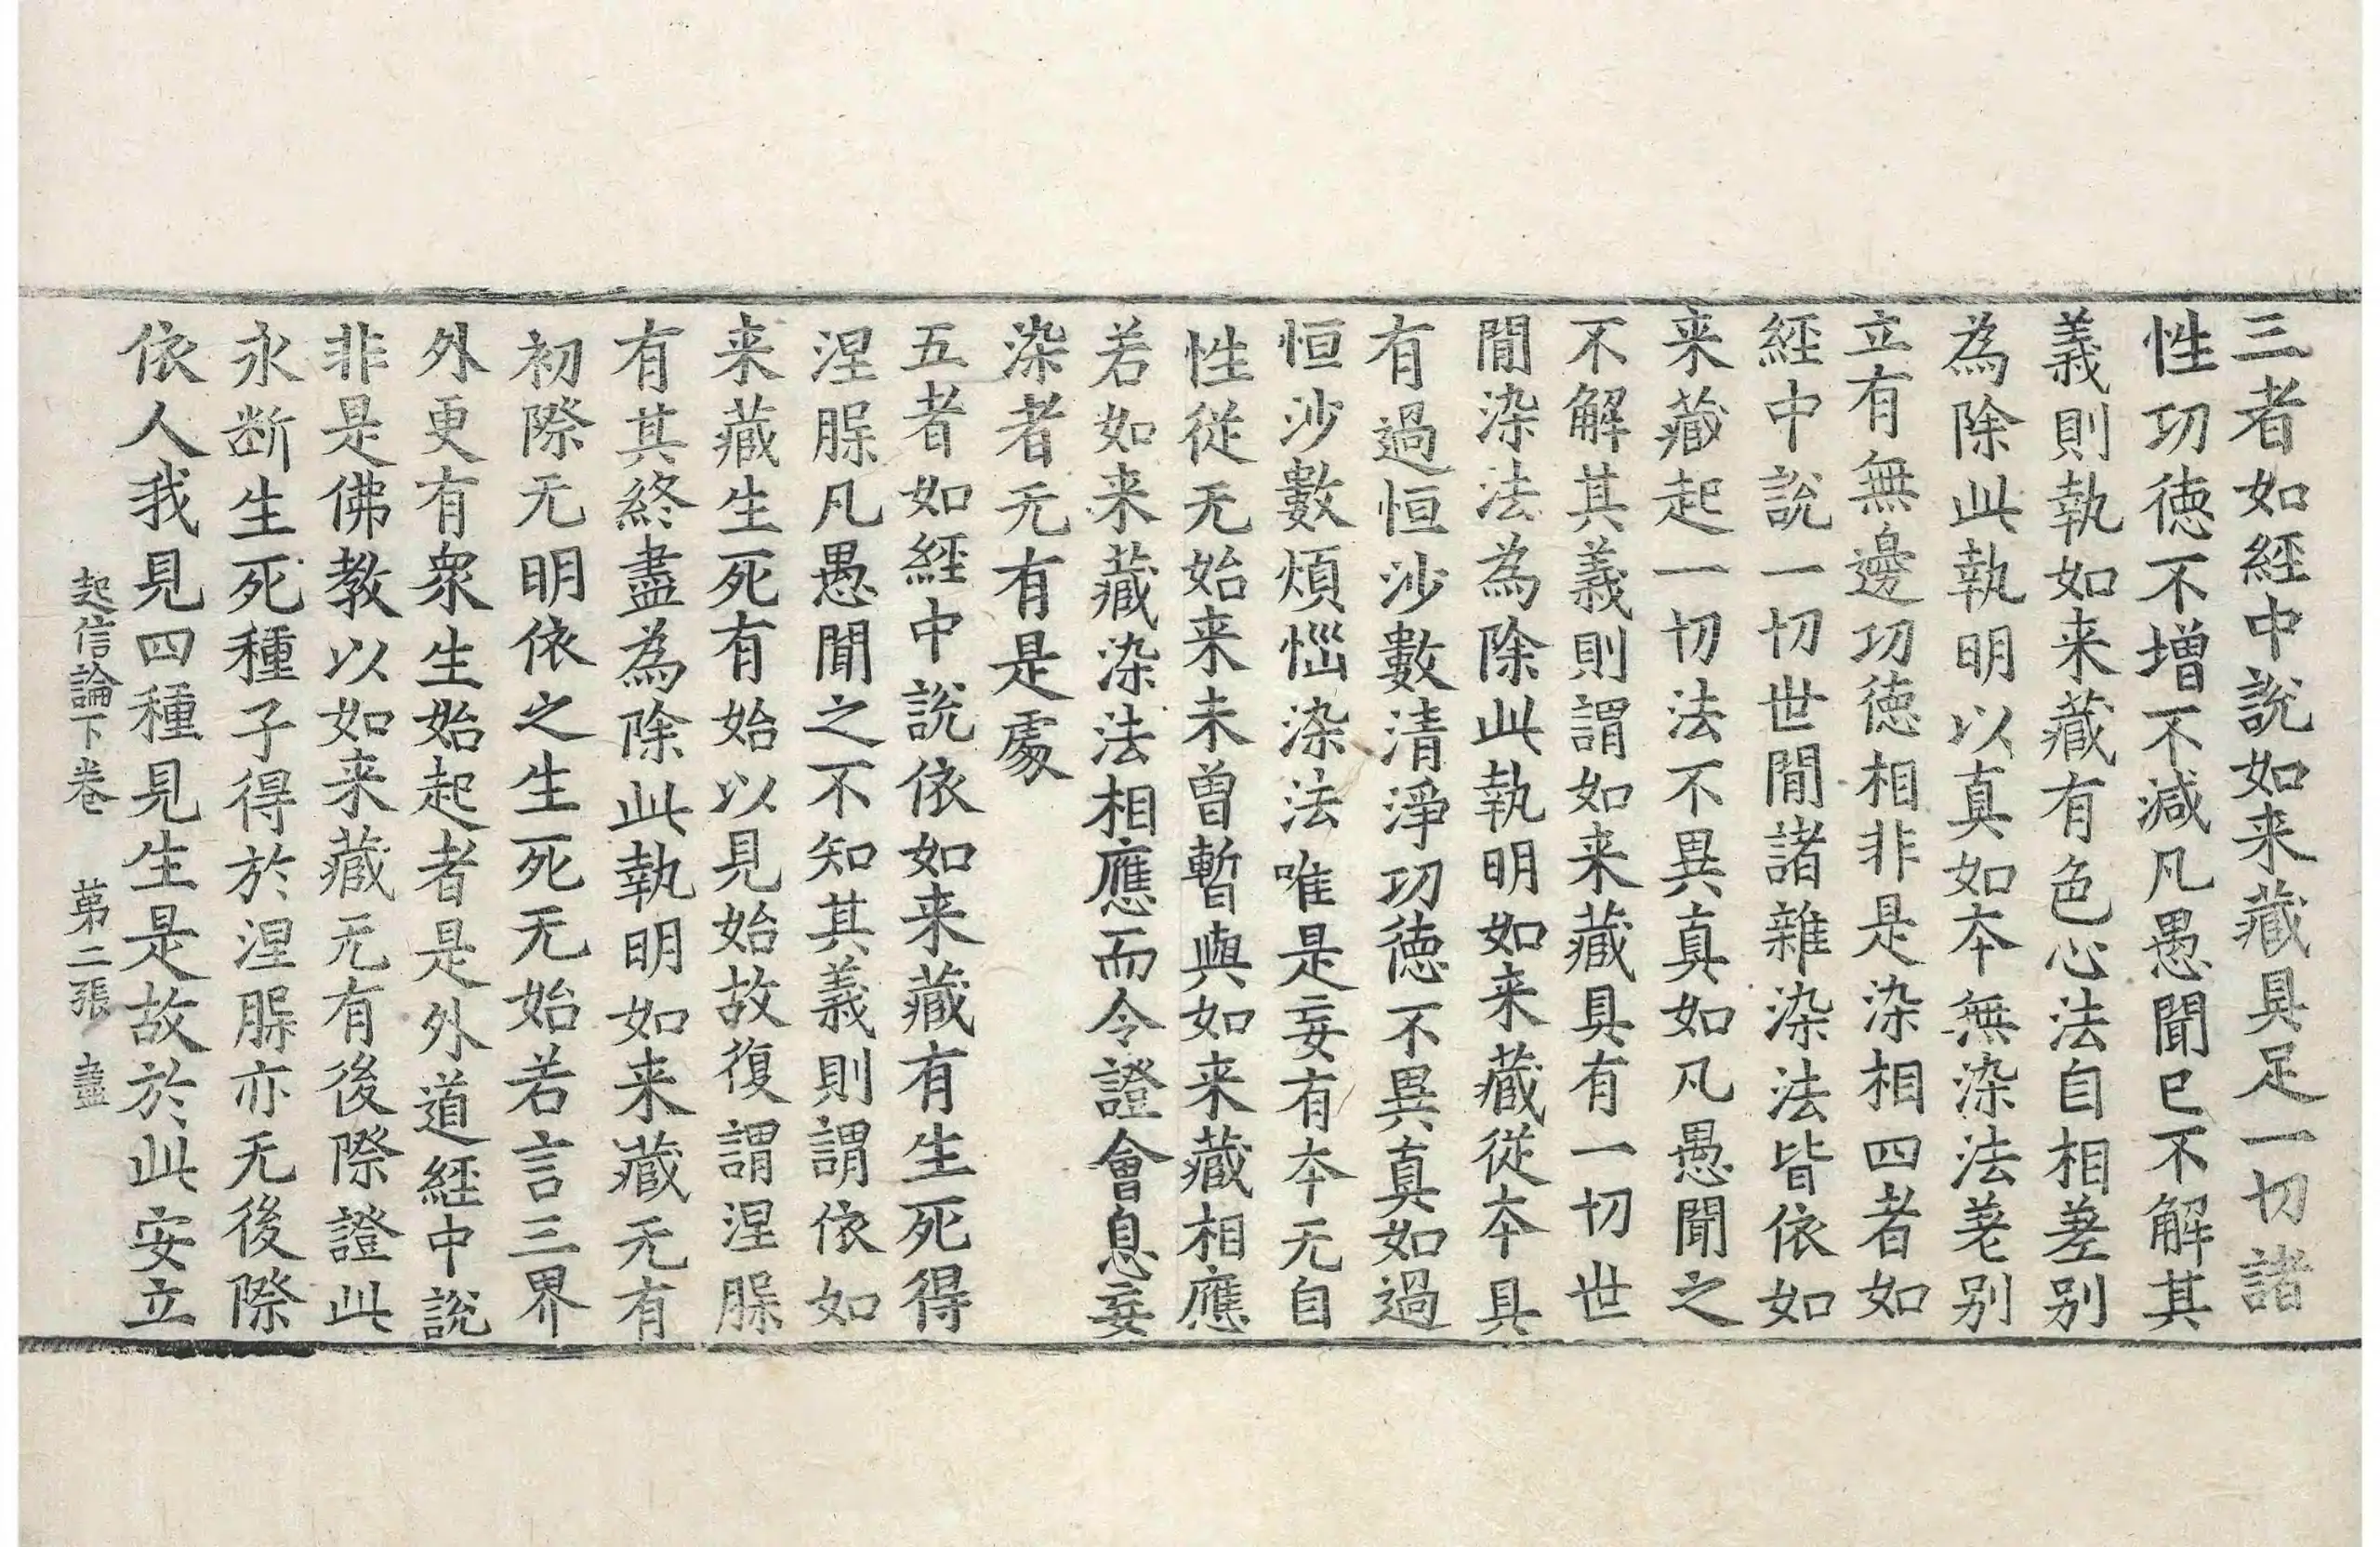 三者如經中說如来藏具足一切諸
性功徳不增不減凡愚聞已不解其
義則執如来藏有色心法自相差别
為除此執明以真如夲無染法差别
立有無邊功徳相非是染相四者如
經中說一切世間諸雜染法皆依如
来藏起一切法不異真如凡愚聞之
不解其義則謂如来藏具有一切世
間染法為除此執明如来藏従夲具
有過恒沙數清淨功徳不異真如過
恒沙數煩惱染法唯是妄有夲无自
性従无始来未曾暫與如来藏相應
若如来藏染法相應而令證會息妄
染者无有是處
五者如經中說依如来藏有生死得
涅槃凡愚聞之不知其義則謂依如
来藏生死有始以見始故復謂涅槃
有其終盡為除此執明如来藏无有
初際无明依之生死无始若言三界
外更有衆生始起者是外道經中說
非是佛教以如来藏无有後際證此
永断生死種子得於涅槃亦无後際
依人我見四種見生是故於此安立
起信論下卷 苐二張 盡